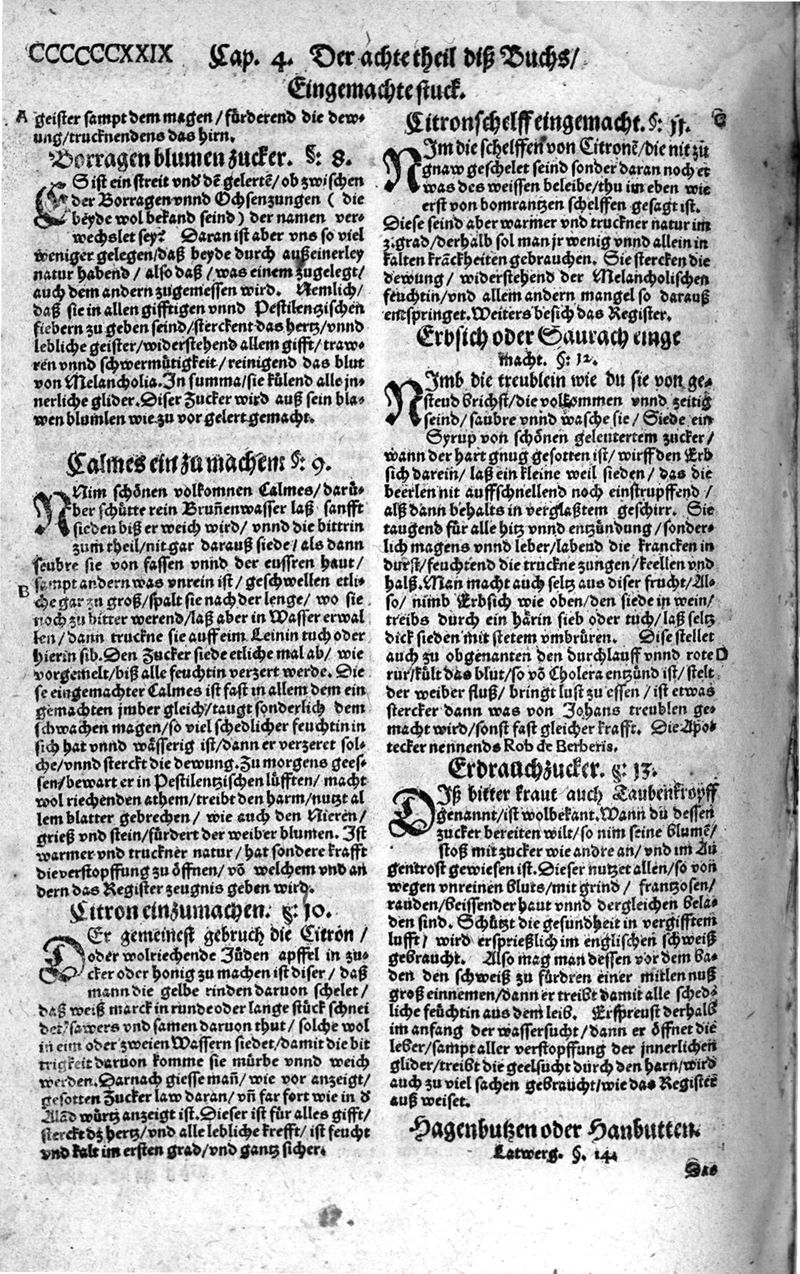 CCCCCCXXIX Cap. 4. Der achte theil diß Buchs/
Eingemachte stuck.
A geister sampt dem magen / fürderend die dew⸗
ung/trucknendens das hirn.
Borragen blumen zucker. §: 8.
ES ist ein streit vnd dē gelertē/ ob zwischen
der Borragen vnnd Ochsenzungen ( die
beyde wol bekand seind ) der namen ver⸗
wechslet sey? Daran ist aber vns so viel
weniger gelegen/daß beyde durch auß einerley
natur habend / also daß / was einem zugelegt/
auch dem andern zugemessen wird. Nemlich/
daß sie in allen gifftigen vnnd Pestilentzischen
fiebern zu geben seind/sterckent das hertz/vnnd
lebliche geister/widerstehend allem gifft/ traw⸗
ren vnnd schwermütigkeit/ reinigend das blut
von Melancholia. In summa/sie külend alle jn⸗
nerliche glider. Diser Zucker wird auß sein bla⸗
wen blumlen wie zu vor gelert gemacht.
Calmes ein zu machem §: 9.
NNim schönen volkomnen Calmes/ darü⸗
ber schütte rein Brunēwasser laß sanfft
sieden biß er weich wird/ vnnd die bittrin
zum theil/nit gar darauß siede/ als dann
seubre sie von fassen vnnd der eussren haut/
B sampt andern was vnrein ist / geschwellen etli⸗
che gar zu groß/spalt sie nach der lenge/ wo sie
noch zu bitter werend/laß aber in Wasser erwal
len / dann truckne sie auff eim Leinin tuch oder
hierin sib. Den Zucker siede etliche mal ab/ wie
vorgemelt/biß alle feuchtin verzert werde. Die
se eingemachter Calmes ist fast in allem dem ein
gemachten jmber gleich/ taugt sonderlich dem
schwachen magen/so viel schedlicher feuchtin in
sich hat vnnd wässerig ist/dann er verzeret sol⸗
che/vnnd sterckt die dewung. Zu morgens gees⸗
sen/bewart er in Pestilentzischen lüfften/ macht
wol riechenden athem/treibt den harm/nutzt al
lem blatter gebrechen / wie auch den Nieren/
grieß vnd stein/fürdert der weiber blumen. Ist
warmer vnd truckner natur / hat sondere krafft
die verstopffung zu öffnen/ vō welchem vnd an
dern das Register zeugnis geben wird.
Citron einzumachen. §: 10.
DEr gemeinest gebruch die Citron /
oder wolriechende Jüden apffel in zu⸗
cker oder honig zu machen ist diser / daß
mann die gelbe rinden daruon schelet /
daß weiß marck in runde oder lange stück schnei
det/ sawers vnd samen daruon thut/ solche wol
in eim oder zweien Wassern siedet/damit die bit
trigkeit daruon komme sie mürbe vnnd weich
werden. Darnach giesse mañ/ wie vor anzeigt/
gesotten Zucker law daran/ vñ far fort wie in d
Aland würtz anzeigt ist. Dieser ist für alles gifft/
sterckt dz hertz/vnd alle lebliche krefft/ ist feucht
vnd kalt im ersten grad/vnd gantz sicher.
Citronschelff eingemacht. §: 11. C
NIm die schelffen von Citronē/die nit zu
gnaw geschelet seind sonder daran noch et
was des weissen beleibe/thu im eben wie
erst von bomrantzen schelffen gesagt ist.
Diese seind aber warmer vnd truckner natur im
2. grad/derhalb sol man jr wenig vnnd allein in
kalten krāckheiten gebrauchen. Sie stercken die
dewung/ widerstehend der Melancholischen
feuchtin/vnd allem andern mangel so darauß
entspringet. Weiters besich das Register.
Erbsich oder Saurach einge
macht. §: 12.
NImb die treublein wie du sie von ge⸗
stend brichst/die vollkommen vnnd zeitig
seind/ saubre vnnd wasche sie / Siede ein
Syrup von schönen geleutertem zucker/
wann der hart gnug gesotten ist/ wirff den Erb
sich darein/ laß ein kleine weil sieden/ das die
beerlen nit auffschnellend noch einstrupffend/
alß dann behalts in verglaßtem geschirr. Sie
taugend für alle hitz vnnd entzündung/sonder⸗
lich magens vnnd leber/labend die krancken in
durst/feuchtend die truckne zungen/keellen vnd
halß. Man macht auch seltz aus diser frucht/Al⸗
so/ nimb Erbsich wie oben/den siede in wein/
treibs durch ein härin sieb oder tuch/laß seltz
dick sieden mit stetem vmbrüren. Dise stellet
auch zu obgenanten den durchlauff vnnd rote D
rur/kült das blut/so vō Cholera entzünd ist/stelt
der weiber fluß/ bringt lust zu essen / ist etwas
stercker dann was von Johans treublen ge⸗
macht wird/sonst fast gleicher krafft. Die Apo⸗
tecker nennends Rob de Berberis.
Erdrauchzucker. §: 13.
DIß bitter kraut auch Taubenkropff
genannt/ist wolbekant. Wann du dessen
zucker bereiten wilt/ so nim seine blumē/
stoß mit zucker wie andre an/ vnd im Au
gentrost gewiesen ist. Dieser nutzet allen/so von
wegen vnreinen bluts/mit grind / frantzosen/
rauden/beissender haut vnnd dergleichen bela⸗
den sind. Schützt die gesundheit in vergifftem
lufft/ wird ersprießlich im englischen schweiß
gebraucht. Also mag man dessen vor dem ba⸗
den den schweiß zu fürdren einer mitlen nuß
groß einnemen/dann er treibt damit alle sched⸗
liche feüchtin aus dem leib. Erspreust derhalb
im anfang der wassersucht/ dann er öffnet die
leber/sampt aller verstopffung der jnnerlichen
glider/treibt die geelsucht durch den harn/wird
auch zu viel sachen gebraucht/wie das Register
auß weiset.
Hagenbutzen oder Hanbutten.
Latwerg. §. 14.
Das